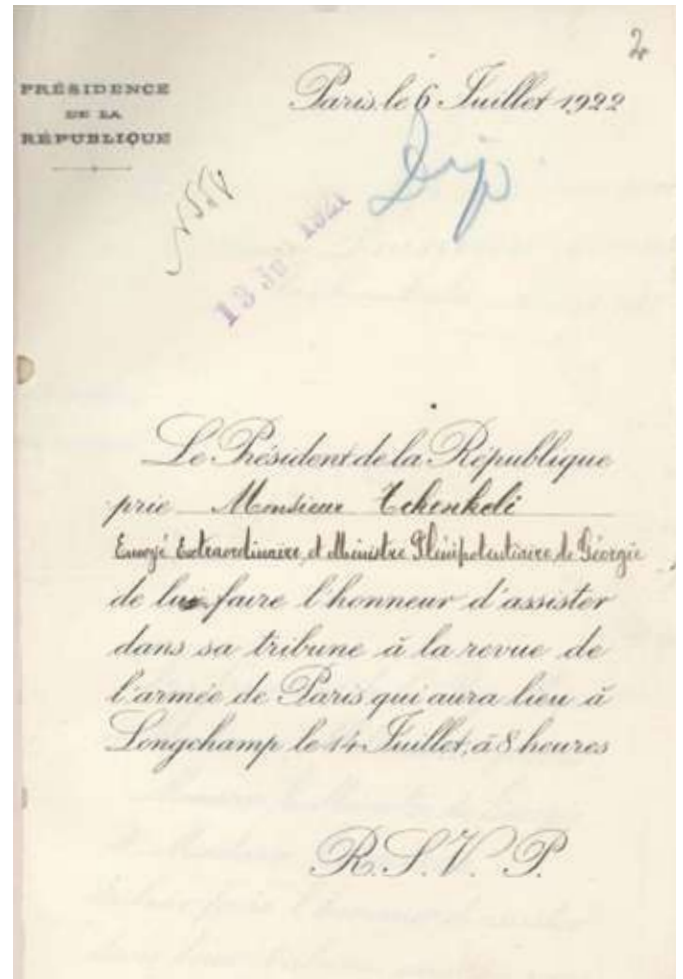 2
PRÉSIDENCE
DE LA
RÉPUBLIQUE
Paris, le 6 Juillet 1922
Dip
13 1921
Le Président de la République
prie Monsieur Tchenkeli
Envoyé Extraordinaire, et Ministre Plénipotentiaire, de Géorgie
de lui faire l'honneur d'assister
dans sa tribune à la revue de
l'armée de Paris qui aura lieu à
Longchamp le 14 Juillet, à 8 heures
R.S.V.P.